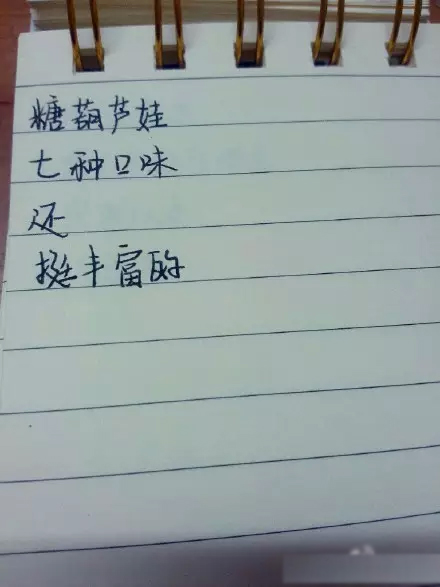 糖葫芦娃
七种口味
还
挺丰富的